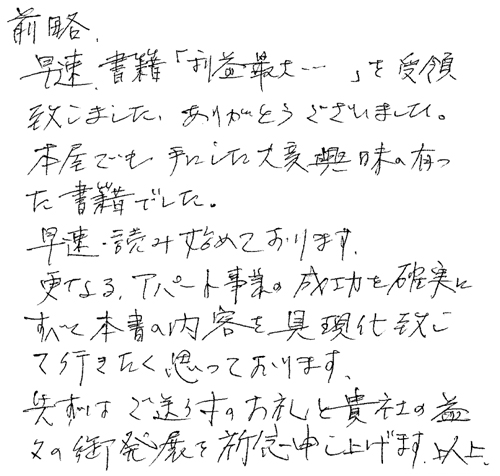 前略、
早速、書籍「利益最大…」を受領
致しました、ありがとうございました。
本屋でも手にした大変興味の有っ
た書籍でした。
早速、読み始めております、
更なる、アパート事業の成功を確実に
すべく本書の内容を具現化致し
て行きたく思っております、
先ずは ご送付のお礼と貴社の益
々の御発展を祈念申し上げます。以上。